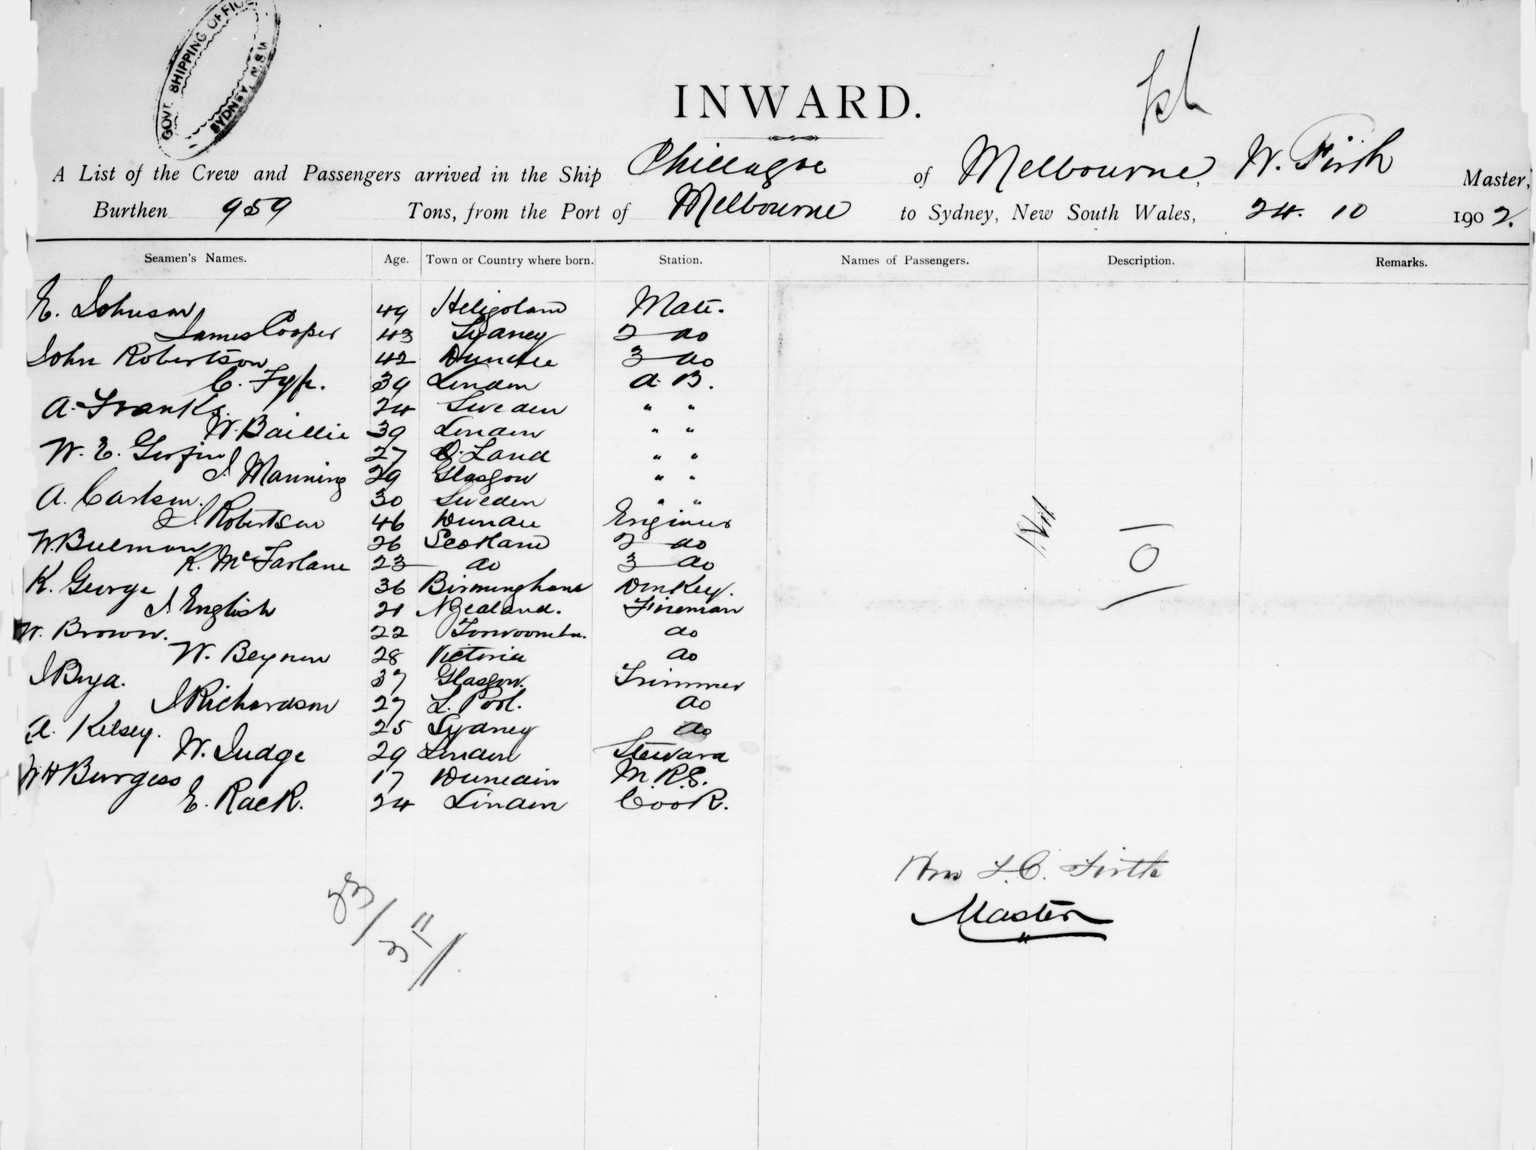 GOVT. SHIPPING OFFICE
SYDNEY, N.S.W
INWARD.
A List of the Crew and Passengers arrived in the Ship Chillagoe of Melbourne, W. Firth Master,
Burthen 959 Tons, from the Port of Melbourne to Sydney, New South Wales, 24. 10 1902.
Seamen's Names. Age. Town or Country where born. Station. Names of Passengers. Description. Remarks.
E. Johnson 49 Heligoland Mate.
James Cooper 43 Sydney 2 do
John Robertson 42 Dundee 3 do
C. Fyfe. 39 London A. B.
A. Franks. 24 Sweden " "
W. Baillie 39 London " "
W. E. 27 Q. Land " "
J Manning 29 Glasgow " "
A. Carlson. 30 Sweden " "
J Robertson 46 Dundee Engineer
W. Bulman 26 Scotland 2 do
K. McFarlane 23 do 3 do
K. George 36 Birmingham Donkey.
J English 21 N Zealand. Fireman
W. Brown. 22 Toowoomba. do
W. Beynon 28 Victoria do
J Brya. 37 Glasgow. Trimmer
J Richardson 27 L. Pool. do
A. Kelsey. 25 Sydney do
W. Judge 29 London Steward
W H Burgess 17 Dunedin M. R. S.
E. Rack. 24 London Cook.
Nil
0
Wm F. C. Firth
Master
23/